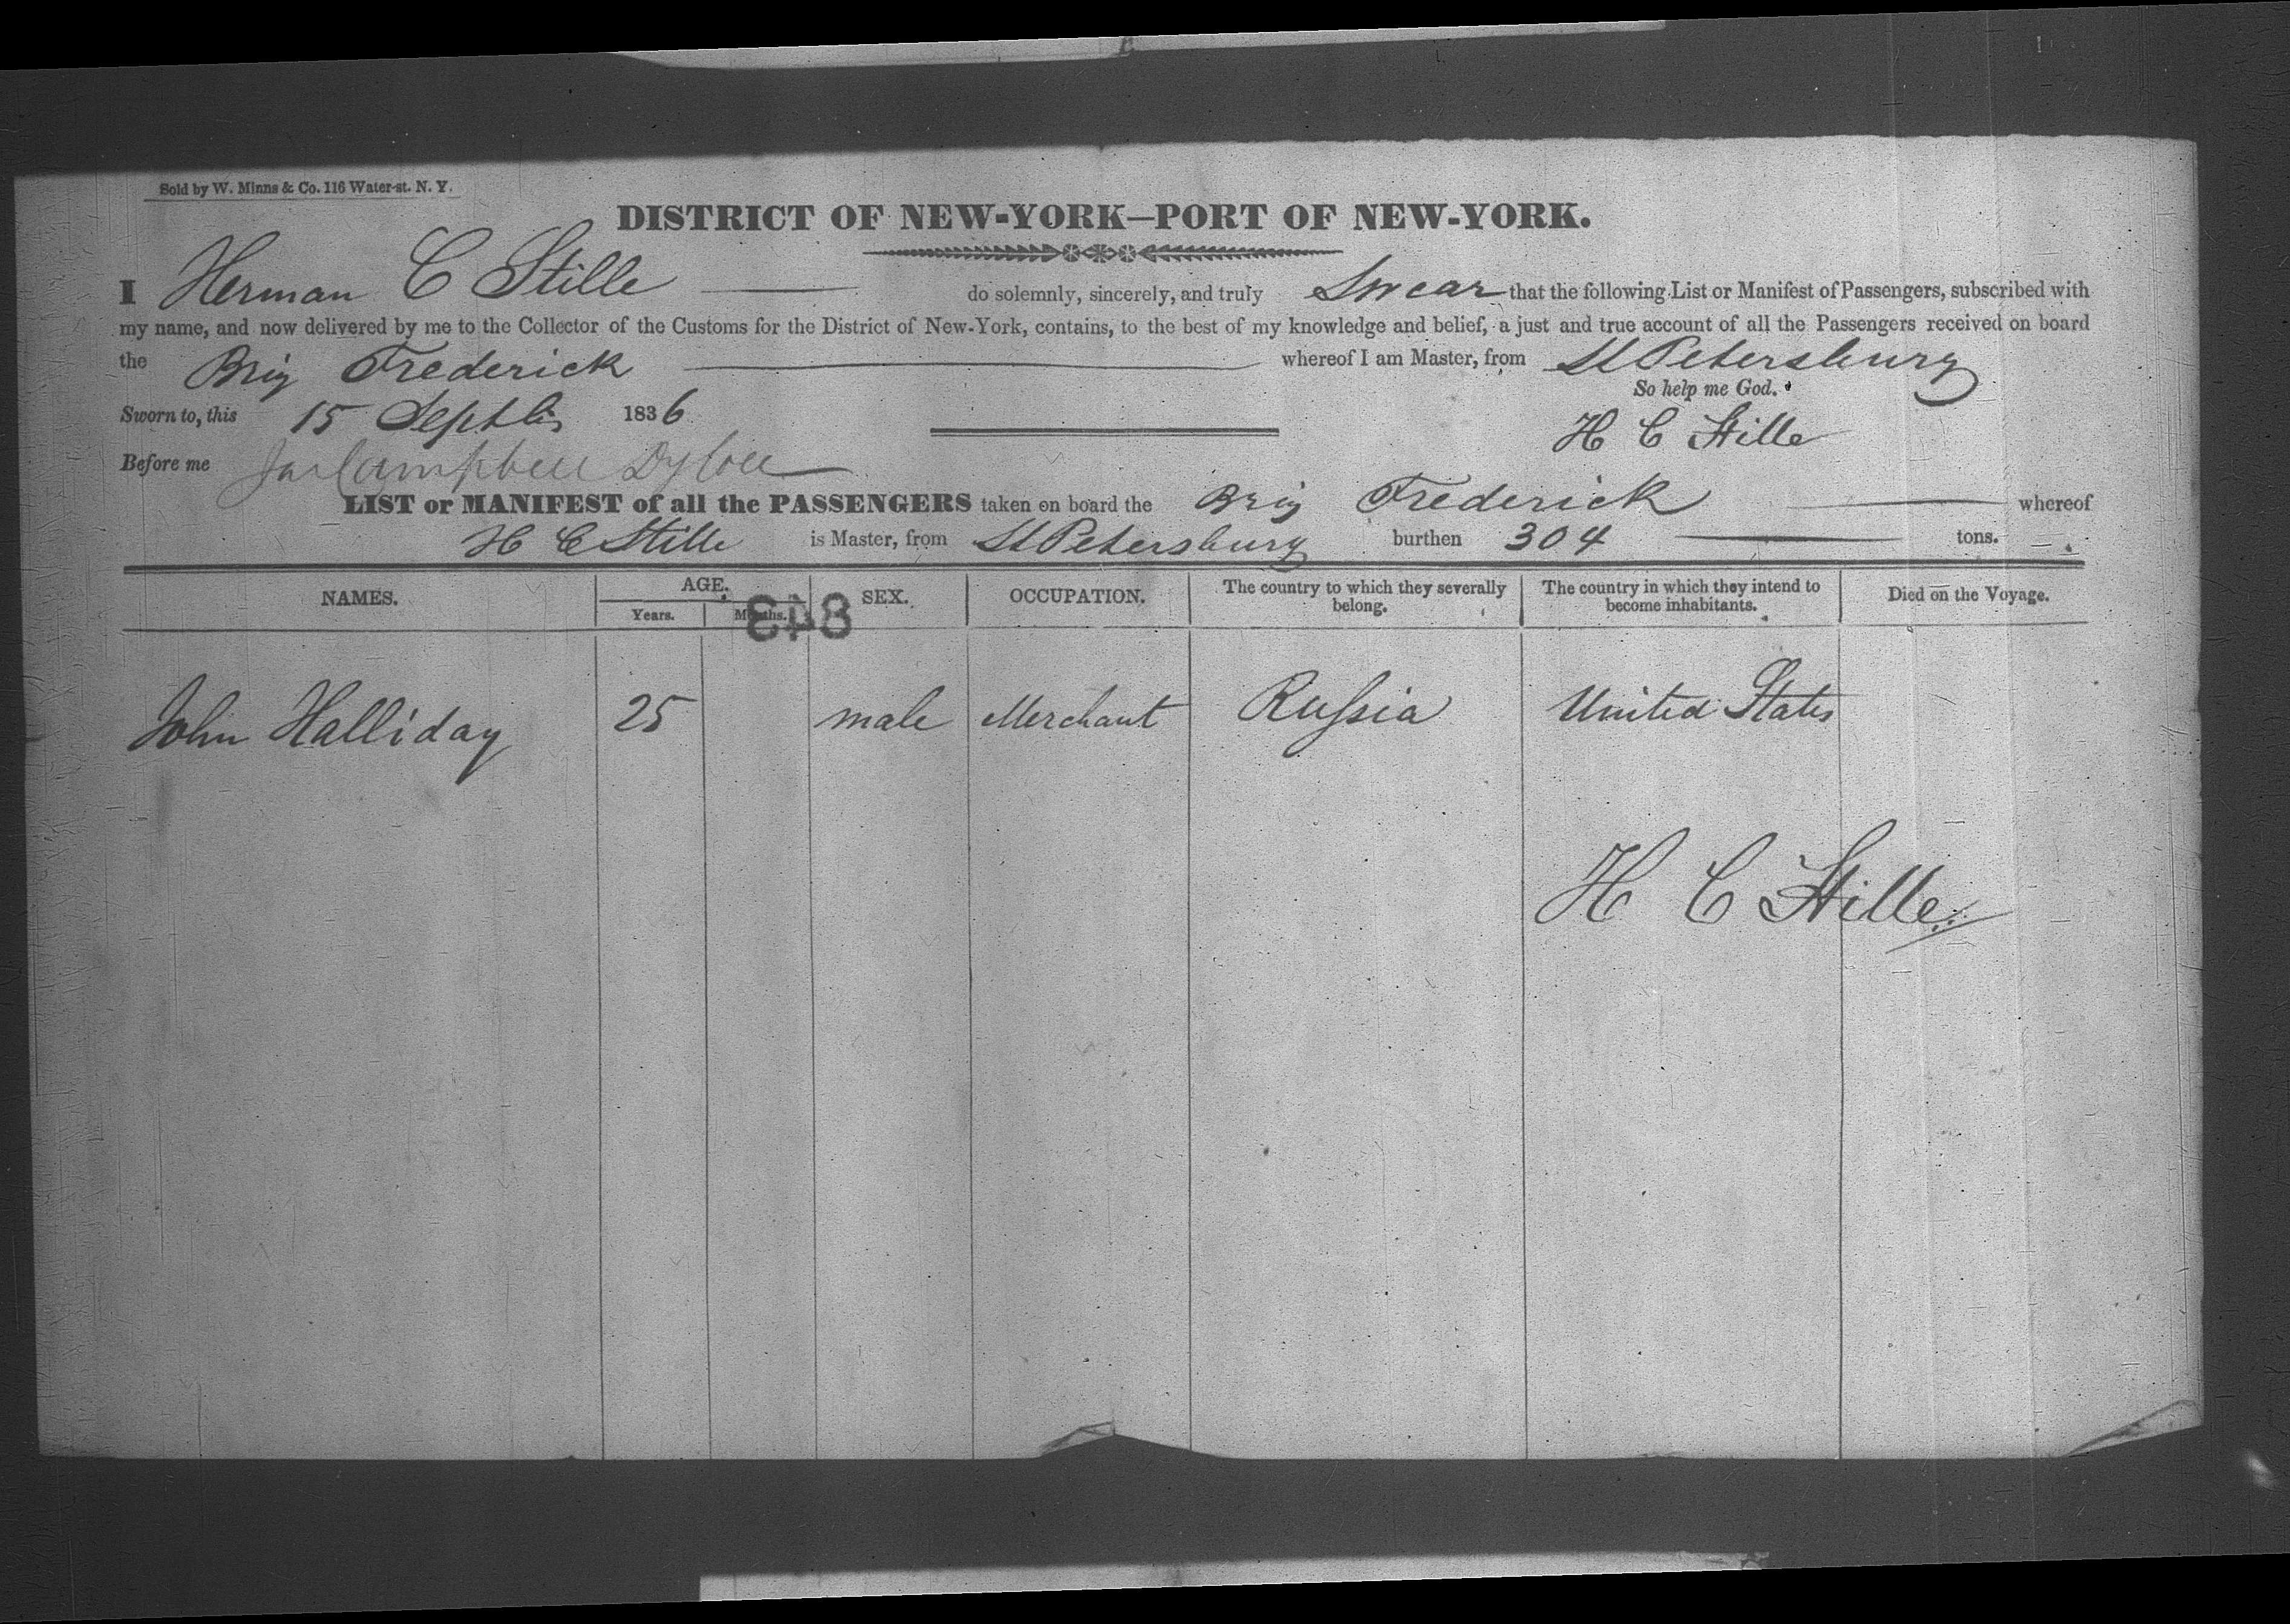 Sold by W. Minns & Co. 116 Water-st. N. Y.
DISTRICT OF NEW-YORK—PORT OF NEW-YORK.
I Herman C Stille do solemnly, sincerely, and truly Swear that the following List or Manifest of Passengers, subscribed with
my name, and now delivered by me to the Collector of the Customs for the District of New-York, contains, to the best of my knowledge and belief, a just and true account of all the Passengers received on board
the Brig Frederick whereof I am Master, from St Petersburg
So help me God.
Sworn to, this 15 Septbr 1836
H C Stille
Before me Campbell
LIST or MANIFEST of all the PASSENGERS taken on board the Brig Frederick whereof
H C Stille is Master, from St Petersburg burthen 304 tons.
NAMES. AGE. Years. Months. SEX. OCCUPATION. The country to which they severally belong. The country in which they intend to become inhabitants. Died on the Voyage.
843
John Halliday 25 male Merchant Russia United States
H C Stille